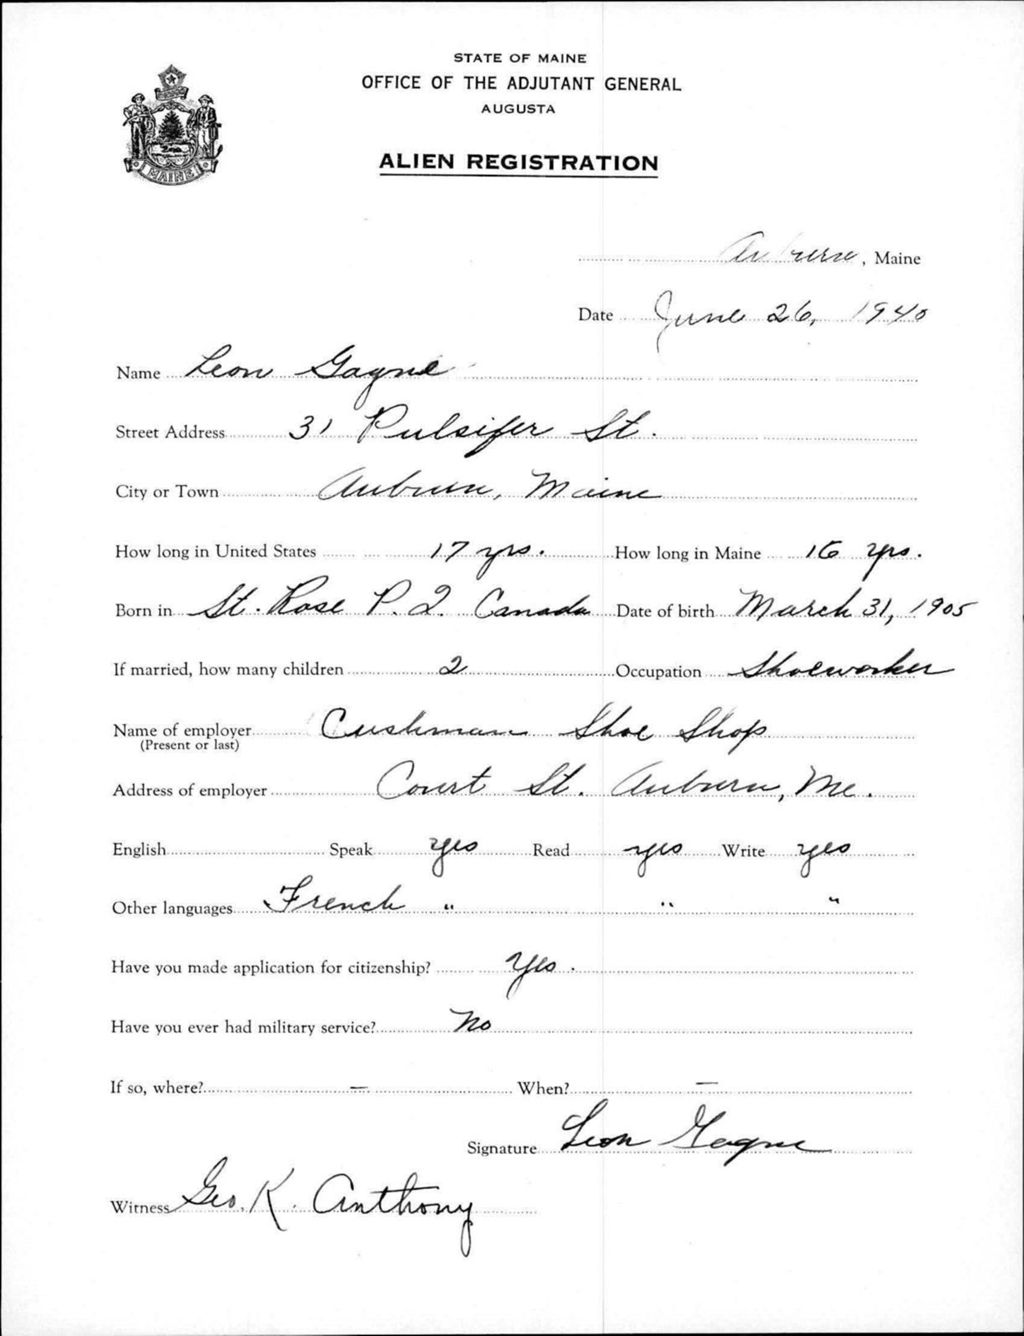 STATE OF MAINE
OFFICE OF THE ADJUTANT GENERAL
AUGUSTA
ALIEN REGISTRATION
MAINE
Auburn, Maine
Date June 26, 1940
Name Leon Gagne
Street Address 31 Pulsifer St.
City or Town Auburn, Maine
How long in United States 17 yrs. How long in Maine 16 yrs.
Born in St. Rose P. Q. Canada Date of birth March 31, 1905
If married, how many children 2 Occupation Shoeworker
Name of employer Cushman Shoe Shop
(Present or last)
Address of employer Court St. Auburn, Me.
English Speak yes Read yes Write yes
Other languages French " " "
Have you made application for citizenship? Yes.
Have you ever had military service? No
If so, where? — When? —
Signature Leon Gagne
Witness Geo. K. Anthony